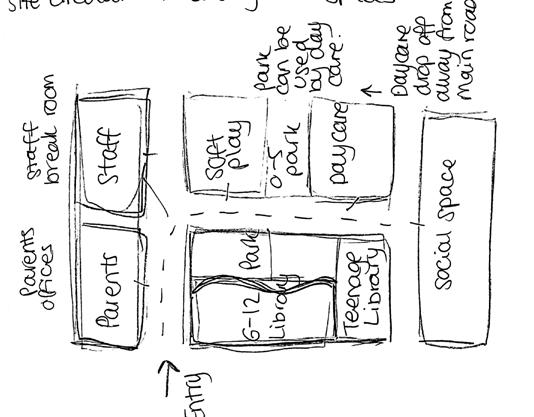 site
Staff
break room
Parents
offices
Staff
Parents
Soft
play
0-5
park
daycare
Park
can be
used
by day
care.
Daycare
drop off
away from
main road
Park
6-12
Library
Teenage
Library
Social space
Entry